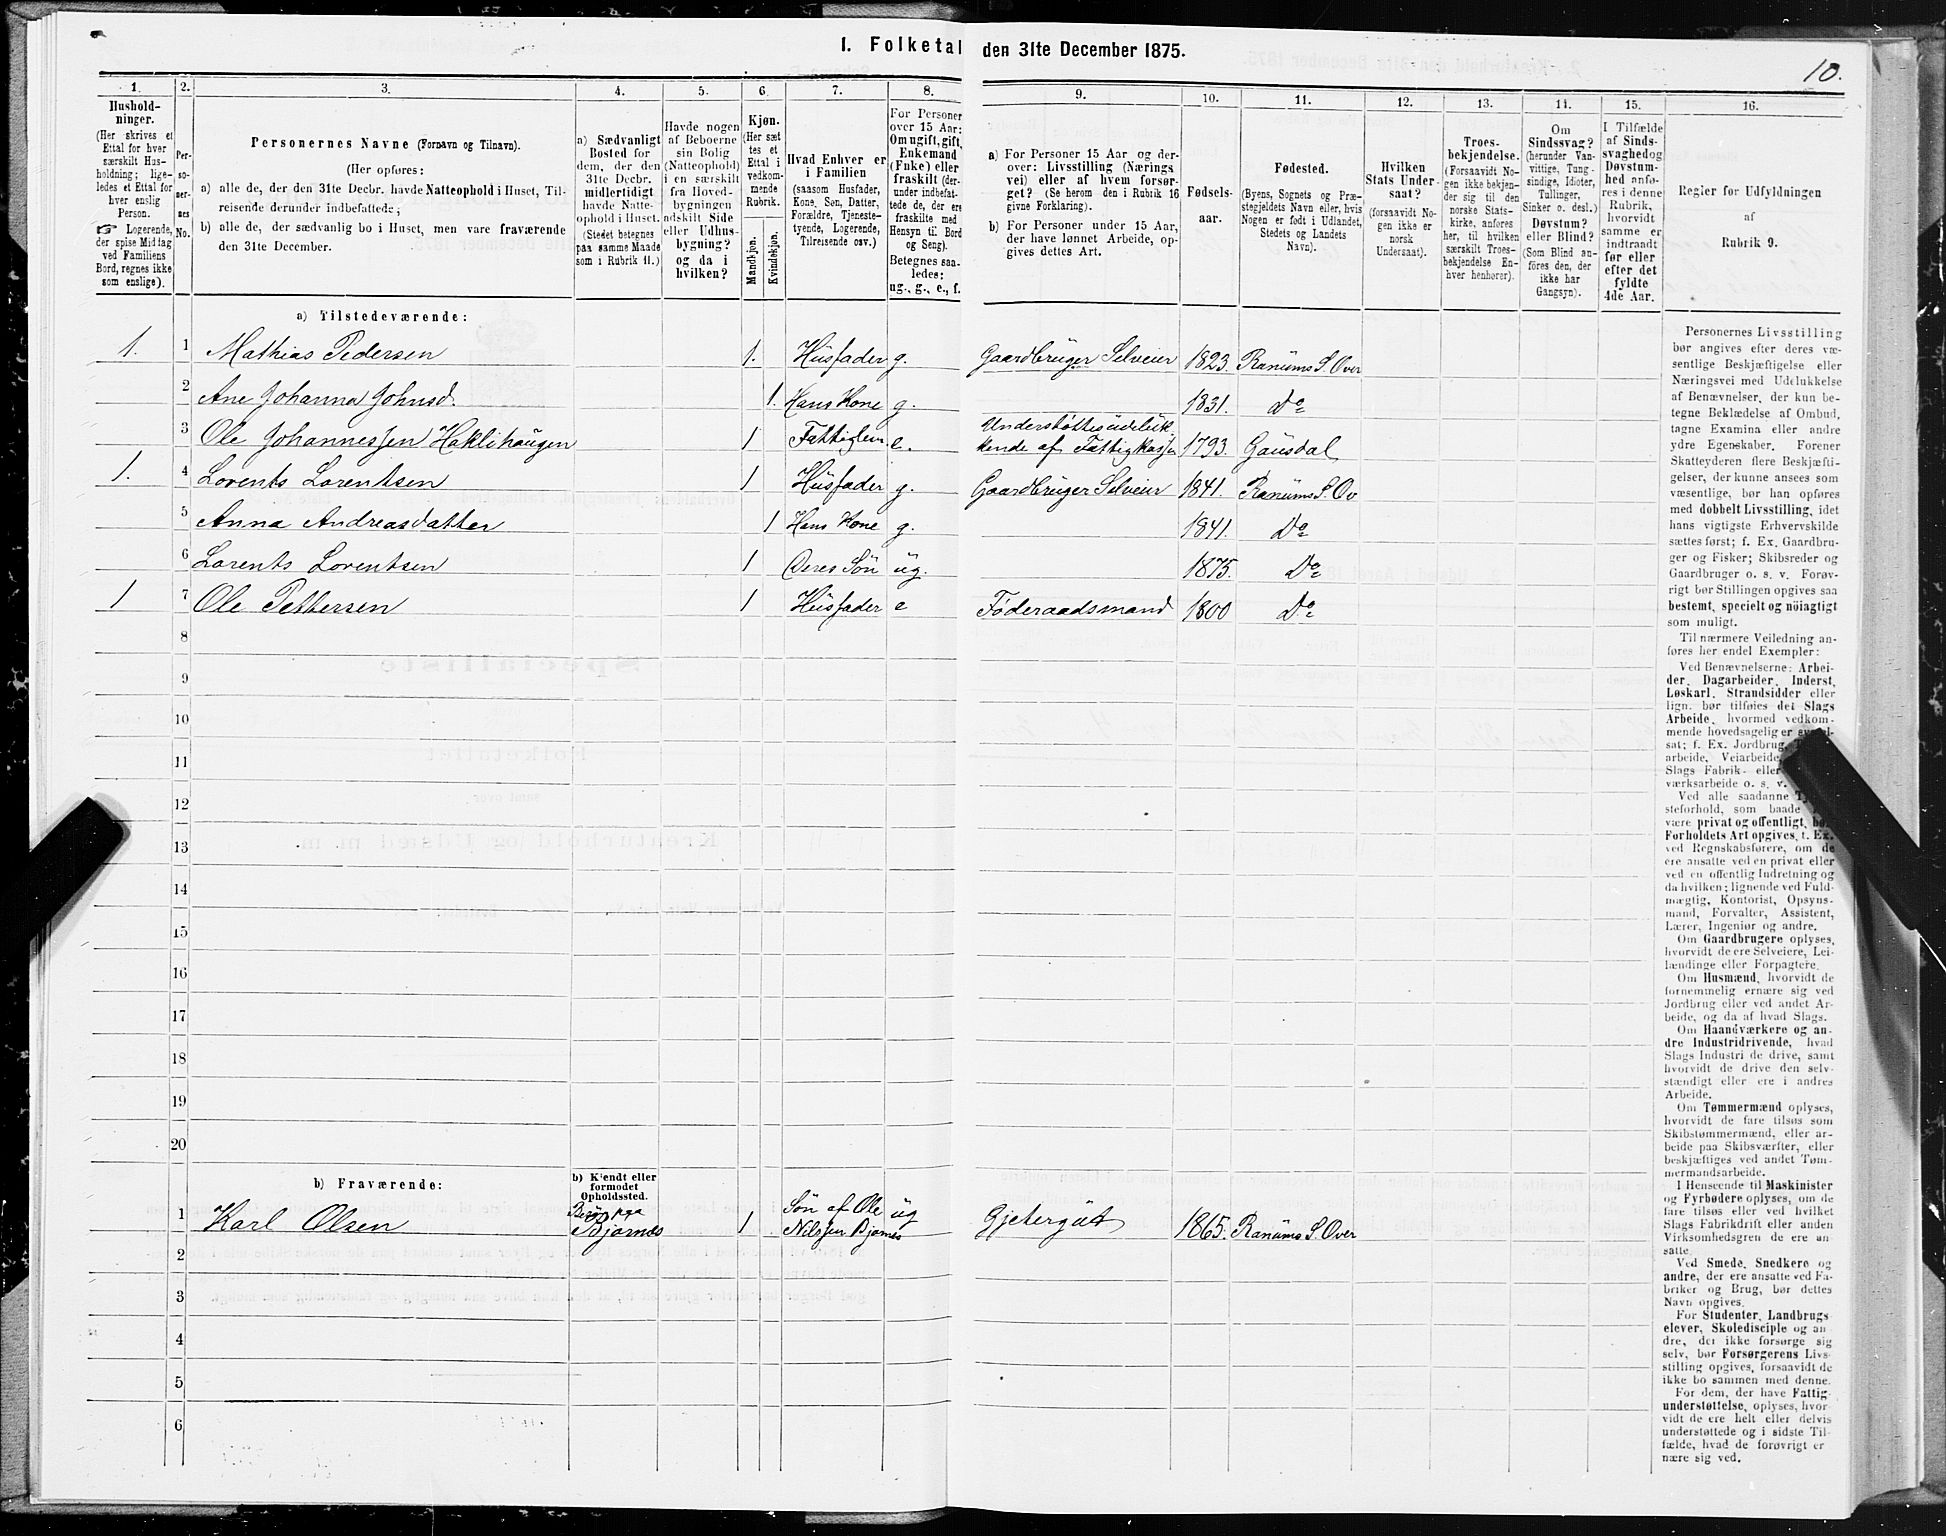 I. Folketal den 31te December 1875.
10.
1. 2. 3. 4. 5. 6. 7. 8. 9. 10. 11. 12. 13. 14. 15. 16.
Hushold-
ninger.
(Her skrives et
Ettal for hver
særskilt Hus-
holdning; lige-
ledes et Ettal for
hver enslig
Person.
☞ Logerende,
der spise Middag
ved Familiens
Bord, regnes ikke
som enslige).
Per-
so-
ner-
nes
No.
Personernes Navne (Fornavn og Tilnavn).
(Her opføres:
a) alle de, der den 31te Decbr. havde Natteophold i Huset, Til-
reisende derunder indbefattede;
b) alle de, der sædvanlig bo i Huset, men vare fraværende
den 31te December.
a) Sædvanligt
Bosted for
dem, der den
31te Decbr.
midlertidigt
havde Natte-
ophold i Huset.
(Stedet betegnes
paa samme Maade
som i Rubrik 11.)
Havde nogen
af Beboerne
sin Bolig
(Natteophold)
i en særskilt
fra Hoved-
bygningen
adskilt Side
eller Udhus-
bygning?
og da i
hvilken?
Kjøn.
(Her sæt-
tes et
Ettal i
vedkom-
mende
Rubrik.
Mandkjøn.
Kvindekjøn.
Hvad Enhver er
i Familien
(saasom Husfader,
Kone, Søn, Datter,
Forældre, Tjeneste-
tyende, Logerende,
Tilreisende osv.)
For Personer
over 15 Aar:
Om ugift, gift,
Enkemand
(Enke) eller
fraskilt (der-
under indbefat-
tede de, der ere
fraskilte med
Hensyn til Bord
og Seng).
Betegnes saa-
ledes:
ug., g., e., f.
a) For Personer 15 Aar og der-
over: Livsstilling (Nærings
vei) eller af hvem forsør-
get? (Se herom den i Rubrik 16
givne Forklaring).
b) For Personer under 15 Aar,
der have lønnet Arbeide, op-
gives dettes Art.
Fødsels-
aar.
Fødested.
(Byens, Sognets og Præ-
stegjeldets Navn eller, hvis
Nogen er født i Udlandet,
Stedets og Landets
Navn).
Hvilken
Stats Under-
saat?
(forsaavidt No-
gen ikke er
norsk
Undersaat).
Troes-
bekjendelse.
(Forsaavidt No-
gen ikke bekjen-
der sig til den
norske Stats-
kirke, anføres
her, til hvilken
særskilt Troes-
bekjendelse En-
hver henhører).
Om
Sindssvag?
(herunder Van-
vittige, Tung-
sindige, Idioter,
Tullinger,
Sinker o. desl.)
Døvstum?
eller Blind?
(Som Blind an-
føres den, der
ikke har
Gangsyn).
I Tilfælde
af Sinds-
svaghed og
Døvstum-
hed anfø-
res i denne
Rubrik,
hvorvidt
samme er
indtraadt
før eller
efter det
fyldte
4de Aar.
Regler for Udfyldningen
af
Rubrik 9.
a) Tilstedeværende:
1. 1 Mathias Pedersen 1. Husfader g. Gaardbruger Selveier 1823. Ranums S. Over
2 Ane Johanna Johnsd. 1. Hans Kone g. 1831. Do
3 Ole Johannessen Haklihaugen 1 Fattiglem. e. Understøttes udeluk-
kende af Fattigkassen 1793. Gausdal
1. 4 Lorents Lorentsen 1 Husfader g. Gaardbruger Selveier 1841. Ranums S. Ov
5 Anna Andreasdatter 1 Hans Kone g. 1841. Do
6 Lorents Lorentsen 1 Deres Søn ug. 1875. Do
1 7 Ole Pettersen 1 Husfader e Føderaadsmand 1800 Do
8
9
10
11
12
13
14
15
16
17
18
19
20
b) Fraværende:
b) Kjendt eller
formodet
Opholdssted.
1 Karl Olsen Bjørnes 1 Søn af Ole
Nilssen Bjørnes ug Gjetergut 1865. Ranums S. Over
2
3
4
5
6
Personernes Livsstilling
bør angives efter deres væ-
sentlige Beskjæftigelse eller
Næringsvei med Udelukkelse
af Benævnelser, der kun be-
tegne Beklædelse af Ombud,
tagne Examina eller andre
ydre Egenskaber. Forener
Skatteyderen flere Beskjæfti-
gelser, der kunne ansees som
væsentlige, bør han opføres
med dobbelt Livsstilling, idet
hans vigtigste Erhvervskilde
sættes først; f. Ex. Gaardbru-
ger og Fisker; Skibsreder og
Gaardbruger o. s. v. Forøv-
rigt bør Stillingen opgives saa
bestemt, specielt og nöiagtigt
som muligt.
Til nærmere Veiledning an-
føres her endel Exempler:
Ved Benævnelserne: Arbei-
der, Dagarbeider, Inderst,
Løskarl, Strandsidder eller
lign. bør tilføies det Slags
Arbeide, hvormed vedkom-
mende hovedsagelig er
sat; f. Ex. Jordbrug,
arbeide, Veiarbeide,
Slags Fabrik- eller
værksarbeide o. s. v.
Ved alle saadanne
steforhold, som baade
være privat og offentligt,
Forholdets Art opgives, t. Ex.
ved Regnskabsførere, om de
ere ansatte ved en privat eller
ved en offentlig Indretning og
da hvilken; lignende ved Fuld-
mægtig, Kontorist, Opsyns-
mand, Forvalter, Assistent,
Lærer, Ingeniør og andre.
Om Gaardbrugere oplyses,
hvorvidt de ere Selveiere, Lei-
lændinge eller Forpagtere.
Om Husmænd, hvorvidt de
fornemmelig ernære sig ved
Jordbrug eller ved andet Ar-
beide, og da af hvad Slags.
Om Haandværkere og an-
dre Industridrivende, hvad
Slags Industri de drive, samt
hvorvidt de drive den selv-
stændigt eller ere i andres
Arbeide.
Om Tømmermænd oplyses,
hvorvidt de fare tilsøs som
Skibstømmermænd, eller ar-
beide paa Skibsværfter, eller
beskjæftiges ved andet Tøm-
mermandsarbeide.
I Henseende til Maskinister
og Fyrbødere oplyses, om de
fare tilsøs eller ved hvilket
Slags Fabrikdrift eller anden
Virksomhedsgren de ere an-
satte.
Ved Smede, Snedkere og
andre, der ere ansatte ved Fa-
briker og Brug, bør dettes
Navn opgives.
For Studenter, Landbrugs-
elever, Skoledisciple og an-
dre, der ikke forsørge sig
selv, bør Forsørgerens Livs-
stilling opgives, forsaavidt de
ikke bo sammen med denne.
For dem, der have Fattig-
understøttelse, oplyses, hvor-
vidt de ere helt eller delvis
understøttede og i sidste Til-
fælde, hvad de forøvrigt er-
nære sig ved.